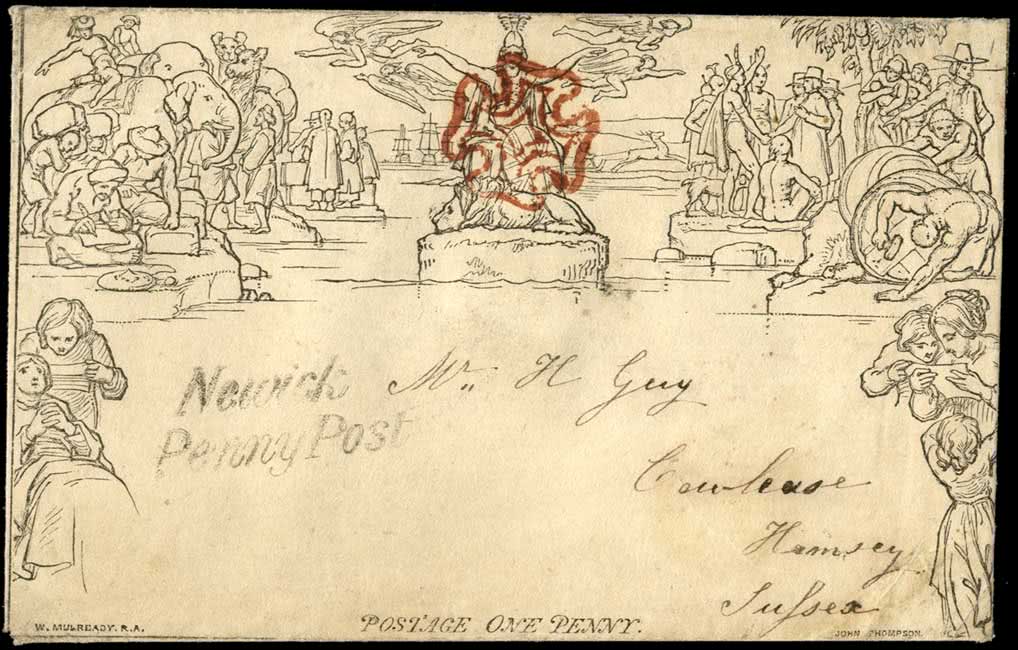 Newick
Penny Post
Mr. H Guy
Cowlease
Hamsey
Sussex
W. MULREADY. R.A.
POSTAGE ONE PENNY.
JOHN THOMPSON.